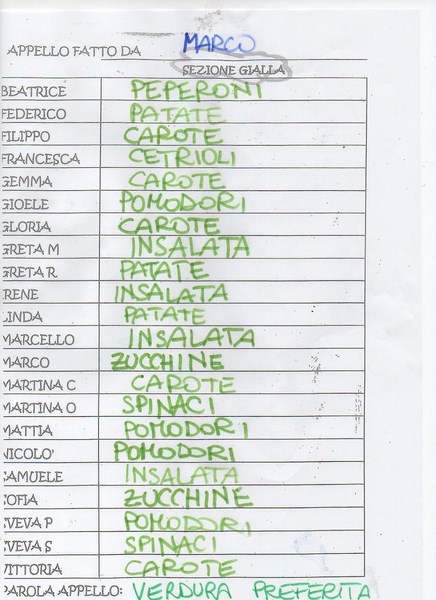 APPELLO FATTO DA MARCO
SEZIONE GIALLA
BEATRICE PEPERONI
FEDERICO PATATE
FILIPPO CAROTE
FRANCESCA CETRIOLI
GEMMA CAROTE
GIOELE POMODORI
GLORIA CAROTE
GRETA M INSALATA
GRETA R PATATE
IRENE INSALATA
LINDA PATATE
MARCELLO INSALATA
MARCO ZUCCHINE
MARTINA C CAROTE
MARTINA O SPINACI
MATTIA POMODORI
NICOLO' POMODORI
SAMUELE INSALATA
SOFIA ZUCCHINE
SVEVA P POMODORI
SVEVA S SPINACI
VITTORIA CAROTE
PAROLA APPELLO: VERDURA PREFERITA